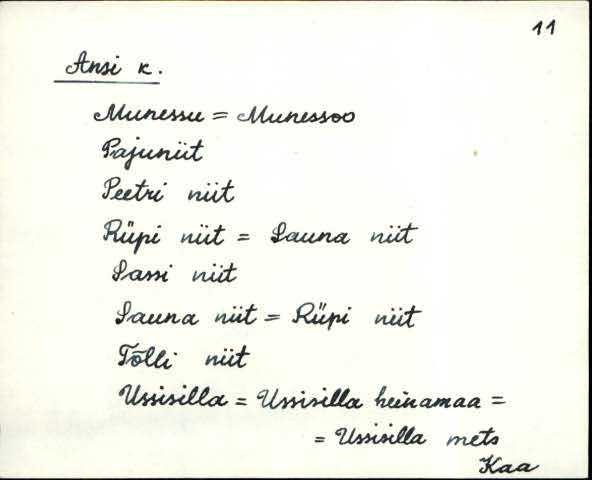 11
Ansi k.
Munessu = Munessoo
Pajuniit
Peetri niit
Rüpi niit = Sauna niit
Sassi niit
Sauna niit = Rüpi niit
Tõlli niit
Ussisilla = Ussisilla heinamaa =
= Ussisilla mets
Kaa